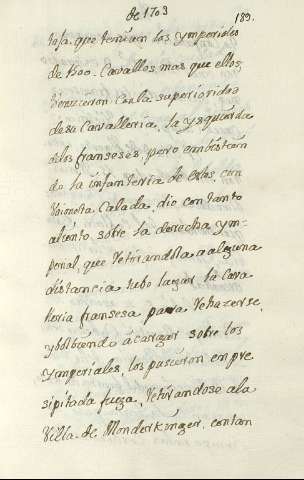 de 1703
189.
taja que tenian los ymperiales
de 1500. Cavallos mas que ellos,
hizieron con la superioridad
de su Cavalleria, la ysquierda
a los franseses, pero embistien
do la infanteria de estos, con
Vaioneta Calada, dio con tanto
aliento sobre la derecha ym-
perial, que Retirandola a alguna
distancia tubo lugar la Cava
lleria fransesa para Rehazerse,
y bolbiendo a cargar sobre los
Ymperiales, los pusieron en pre
sipitada fuga, Retirandose a la
Villa de Monderkinger, con tan